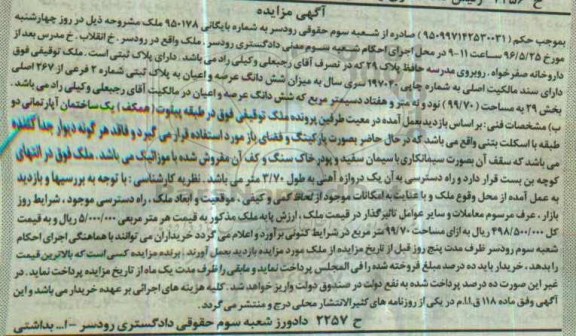 آگهی مزایده
بموجب حکم (۹۵۰۹۹۷۱۴۲۵۳۰۰۳۱) صادره از شعبه سوم حقوقی رودسر به شماره بایگانی ۹۵۰۱۷۸ ملک مشروحه ذیل در روز چهارشنبه
مورخ ۹۶/۵/۲۵ ساعت ۱۱-۹ در محل اجرای احکام شعبه سوم مدنی دادگستری رودسر. ملک واقع در رودسر. خ انقلاب. خ مدرس بعد از
داروخانه صفرخواه. روبروی مدرسه حافظ پلاک ۲۹ که در تصرف آقای رجبعلی وکیلی راد می باشد. دارای پلاک ثبتی است. ملک توقیفی فوق
دارای سند مالکیت اصلی به شماره چاپی ۱۹۷۰۰۲ سری سال به میزان شش دانگ عرصه و اعیان به پلاک ثبتی شماره ۲ فرعی از ۲۶۷ اصلی
بخش ۲۹ به مساحت (۹۹/۷۰) نود و نه متر و هفتاد دسیمتر مربع که شش دانگ عرصه و اعیان در مالکیت آقای رجبعلی وکیلی راد می باشد.
ب) مشخصات فنی: بر اساس بازدید بعمل آمده در معیت طرفین پرونده ملک توقیفی فوق در طبقه پیلوت (همکف) یک ساختمان آپارتمانی دو
طبقه با اسکلت بتنی واقع می باشد که در حال حاضر بصورت پارکینگ و فضای باز مورد استفاده قرار می گیرد و فاقد هر گونه دیوار جدا کننده
می باشد که سقف آن بصورت سیمانکاری با سیمان سفید و پودر خاک سنگ و کف آن مفروش شده با موزائیک می باشد. ملک فوق در انتهای
کوچه بن بست قرار دارد و راه دسترسی به آن یک دروازه آهنی به طول ۳/۷۰ متر می باشد. نظریه کارشناسی: با توجه به بررسیها و بازدید
به عمل آمده از محل وقوع ملک و با عنایت به امکانات موجود از لحاظ کمی و کیفی، موقعیت و ابعاد ملک، راه دسترسی موجود، شرایط روز
بازار، عرف مرسوم معاملات و سایر عوامل تاثیرگذار در قیمت ملک، ارزش پایه ملک مذکور به قیمت هر متر مربعی ۵/۰۰۰/۰۰۰ ریال و به قیمت
کل ۴۹۸/۵۰۰/۰۰۰ ریال به ازای مساحت ۹۹/۷۰ متر مربع در شرایط کنونی برآورد و اعلام می گردد خریداران می توانند با هماهنگی اجرای احکام
شعبه سوم رودسر ظرف مدت پنج روز قبل از تاریخ مزایده از ملک مورد مزایده بازدید بعمل آورند. برنده مزایده کسی است که بالاترین قیمت
را بدهد. خریدار باید ده درصد مبلغ فروخته شده را فی المجلس پرداخت نماید و مابقی را ظرف مدت یک ماه از تاریخ مزایده پرداخت نماید. در
غیر این صورت ده درصد پرداخت شده به نفع دولت در صندوق دولت واریز خواهد شد. کلیه هزینه های اجرائی بر عهده خریدار می باشد و این
آگهی وفق ماده ۱۱۸ ق.ا.ا.م در یکی از روزنامه های کثیرالانتشار محلی درج و منتشر می گردد.
ح ۲۲۵۷ دادورز شعبه سوم حقوقی دادگستری رودسر -ا... بداشتی